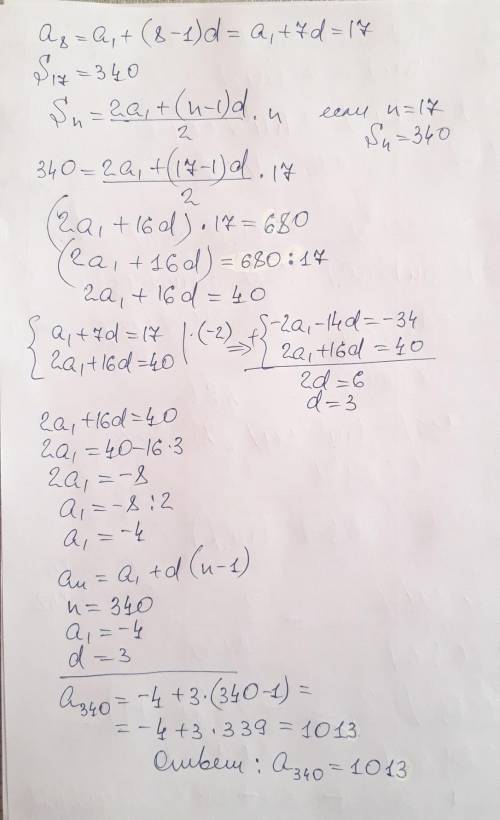 a₈ = a₁ + (8-1)d = a₁ + 7d = 17
S₁₇ = 340
Sₙ = (2a₁ + (n-1)d)/2 · n если n = 17
Sₙ = 340
340 = (2a₁ + (17-1)d)/2 · 17
(2a₁ + 16d) · 17 = 680
(2a₁ + 16d) = 680 : 17
2a₁ + 16d = 40
{ a₁ + 7d = 17 | · (-2) ⇒ + { -2a₁ - 14d = -34
2a₁ + 16d = 40 2a₁ + 16d = 40
2d = 6
d = 3
2a₁ + 16d = 40
2a₁ = 40 - 16·3
2a₁ = -8
a₁ = -8 : 2
a₁ = -4
aₙ = a₁ + d(n-1)
n = 340
a₁ = -4
d = 3
a₃₄₀ = -4 + 3·(340-1) =
= -4 + 3·339 = 1013
Ответ: a₃₄₀ = 1013